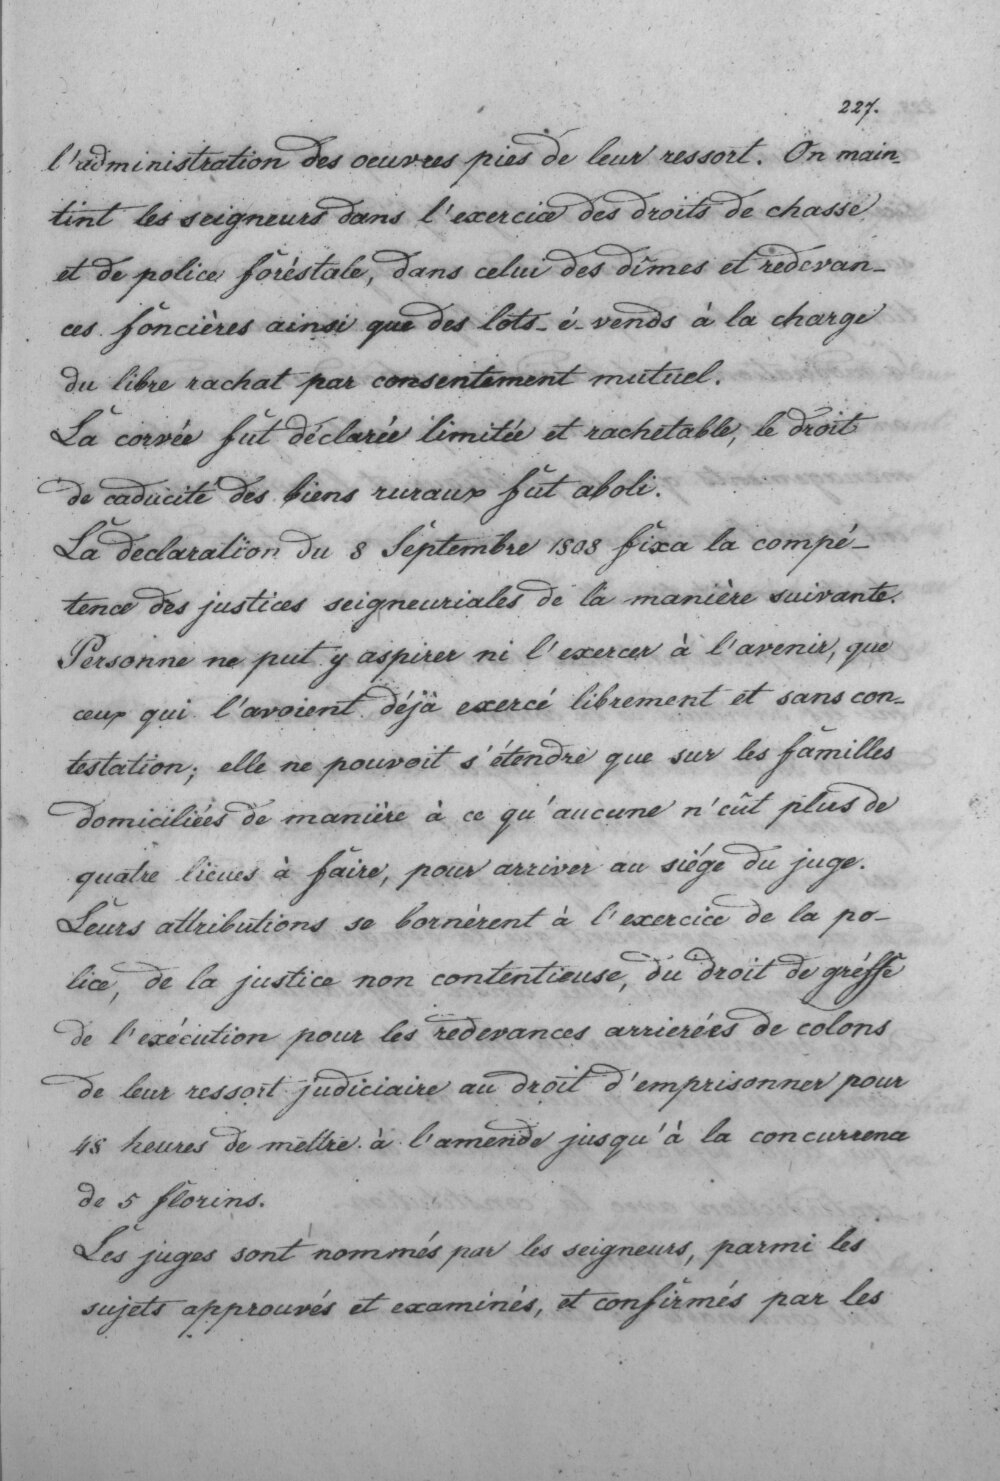 227.
l'administration des oeuvres pies de leur ressort. On main-
tint les seigneurs dans l'exercice des droits de chasse
et de police foréstale, dans celui des dîmes et redevan-
ces foncières ainsi que des lots-é-vends à la charge
du libre rachat par consentement mutuel.
La corvée fut déclarée limitée et rachetable, le droit
de caducité des biens ruraux fut aboli.
La declaration du 8 Septembre 1808 fixa la compé-
tence des justices seigneuriales de la manière suivante.
Personne ne put y aspirer ni l'exercer à l'avenir, que
ceux qui l'avoient déjà exercé librement et sans con-
testation; elle ne pouvoit s'étendre que sur les familles
domiciliées de manière à ce qu'aucune n'eût plus de
quatre lieues à faire, pour arriver au siége du juge.
Leurs attributions se bornèrent à l'exercice de la po-
lice, de la justice non contentieuse, du droit de gréffe
de l'exécution pour les redevances arrierées de colons
de leur ressort judiciaire au droit d'emprisonner pour
48 heures de mettre à l'amende jusqu'à la concurrence
de 5 florins.
Les juges sont nommés par les seigneurs, parmi les
sujets approuvés et examinés, et confirmés par les